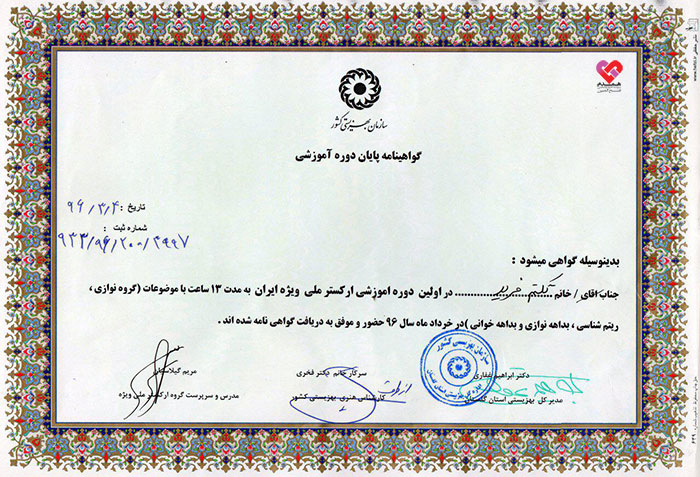 سازمان بهزیستی کشور
گواهینامه پایان دوره آموزشی
تاریخ : ۹۶/۳/۴
شماره ثبت :
۹۳۳/۹۶/۲۰۰/۴۹۹۷
بدینوسیله گواهی میشود :
جناب آقای / خانم در اولین دوره اموزشی ارکستر ملی ویژه ایران به مدت ۱۳ ساعت با موضوعات (گروه نوازی ،
ریتم شناسی ، بداهه نوازی و بداهه خوانی )در خرداد ماه سال ۹۶ حضور و موفق به دریافت گواهی نامه شده اند .
دکتر ابراهیم غفاری
مدیر کل بهزیستی استان
سرکار خانم دکتر فخری
کارشناس هنری بهزیستی کشور
مریم
مدرس و سرپرست گروه ارکستر ملی ویژه
سازمان بهزیستی کشور